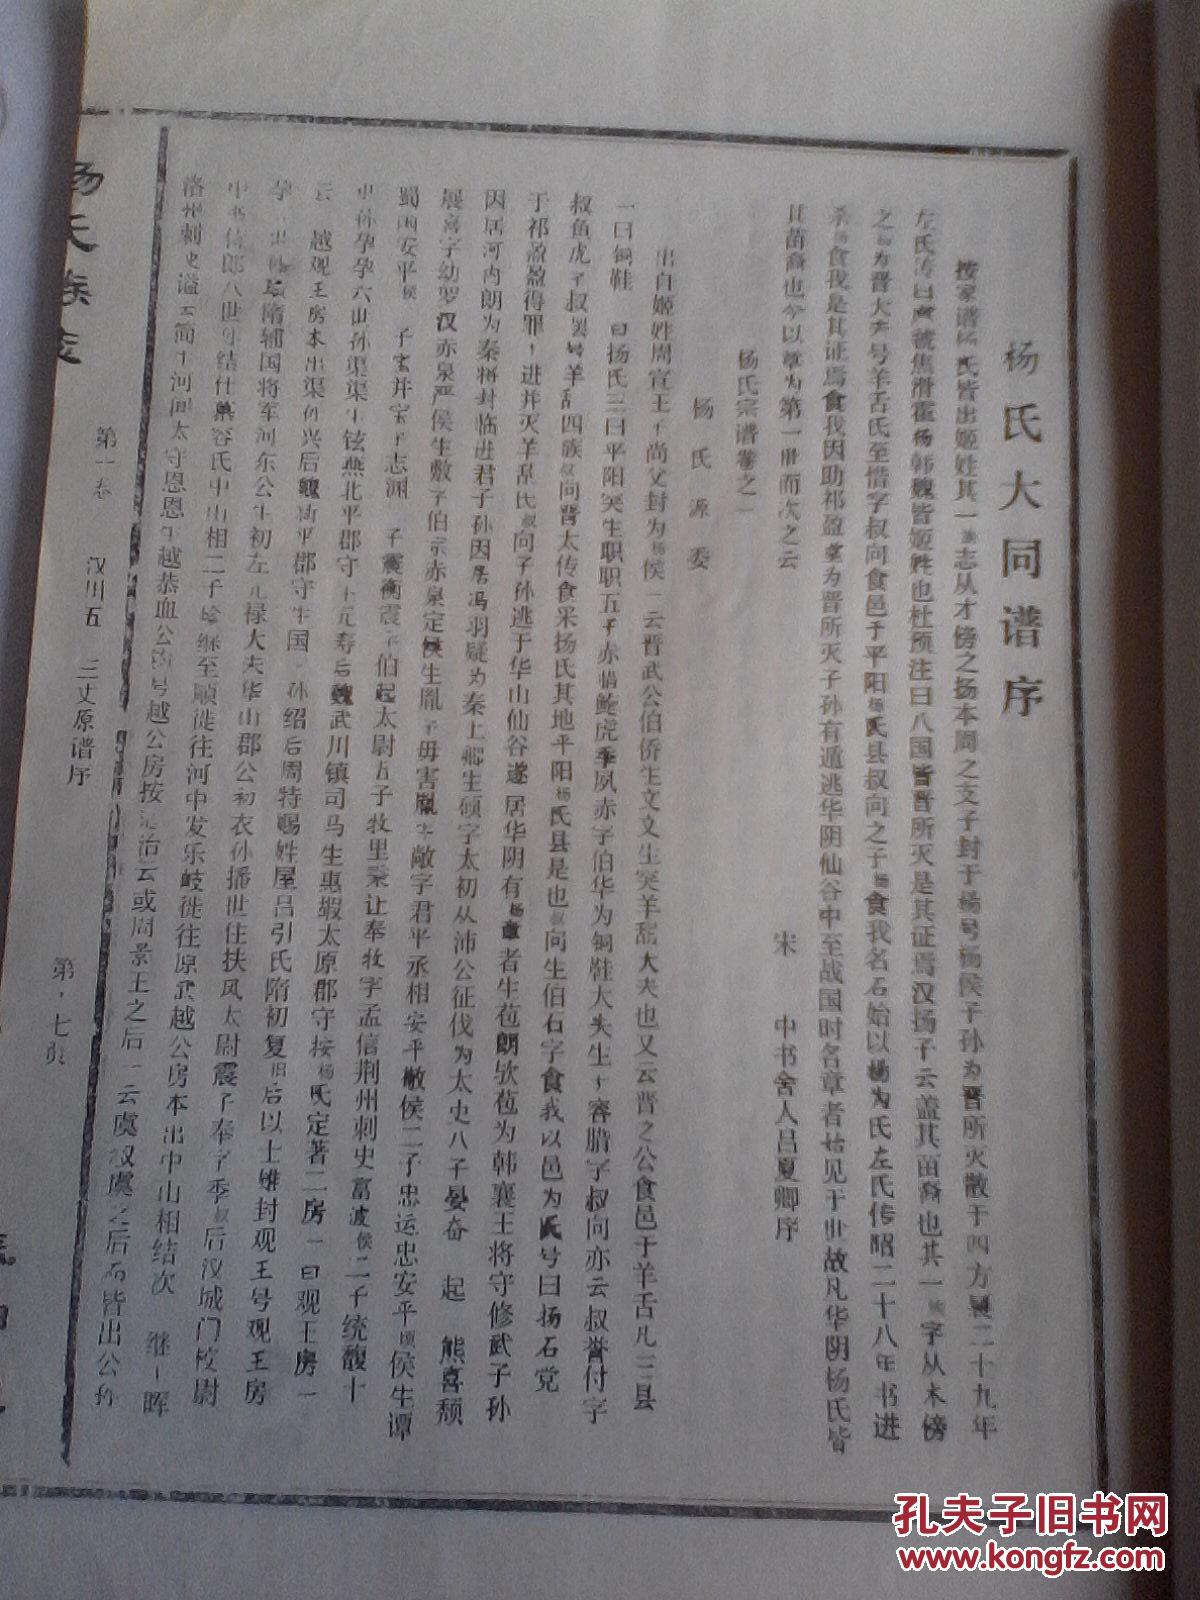 杨氏大同谱序
按家谱杨氏皆出姬姓其一族志从才傍之扬本周之支子封于杨号杨侯子孙为晋所灭散于四方襄二十九年
左氏传曰虞虢焦滑霍杨韩魏皆姬姓也杜预注曰八国皆晋所灭是其证焉汉扬子云盖其苗裔也其一族字从木傍
之杨为晋大夫号羊舌氏至惜字叔向食邑于平阳杨氏县叔向之子杨食我名石始以杨为氏左氏传昭二十八年书进
杀杨食我是其证焉食我因助祁盈为晋所灭子孙有遁逃华阴仙谷中至战国时名章者始见于世故凡华阴杨氏皆
其苗裔也今以章为第一世而次之云
宋 中书舍人吕夏卿序
杨氏宗谱卷之一
杨氏源委
出自姬姓周宣王子尚父封为杨侯一云晋武公伯侨生文文生突羊舌大夫也又云晋之公食邑于羊舌凡三县
一曰铜鞋 曰扬氏三曰平阳突生职职五子赤惜鲍虎季夙赤字伯华为铜鞋大夫生 容腊字叔向亦云叔誉付字
叔鱼虎子叔罴号羊舌四族叔向晋太传食采扬氏其地平阳杨氏县是也叔向生伯石字食我以邑为氏号曰扬石党
于祁盈盈得罪 进并灭羊舌氏叔向子孙逃于华山仙谷遂居华阴有杨章者生苞朗欤苞为韩襄王将守修武子孙
因居河内朗为秦将封临进君子孙因居冯羽疑为秦上卿生硕字太初从沛公征伐为太史八子晏奋 起 熊喜颓
展喜字幼罗汉赤泉严侯生敷字伯宗赤泉定侯生胤 子毋害胤生敞字君平承相安平敝侯二子忠运忠安平顷侯生谭
蜀国安平侯 子宝并宝子志渊 子震衡震字伯起太尉五子牧里秉让奉牧字孟信荆州刺史富波侯二子统馥十
世孙孕孕六山孙渠渠生铉燕北平郡守 元寿后魏武川镇司马生惠嘏太原郡守按杨氏定著二房一曰观王房一
云 越观王房本出渠 兴后魏 平郡守生国 孙绍后周特赐姓屋吕引氏隋初复旧后以士雄封观王号观王房
孕 世孙 隋辅国将军河东公生初左光禄大夫华山郡公初衣孙播世住扶风太尉震子奉字季叔后汉城门校尉
中书侍郎八世 结仕慕容氏中山相二子珍继至顺徙往河中发乐岐徙往原武越公房本出中山相结次 继 晖
洛州刺史谥云简 河间太守恩恩生越恭血公钧号越公房按 治云或周景王之后 云虞叔虞之后 皆出公孙
杨氏族志
第一卷 汉川五 三丈原谱序
第 七页
孔夫子旧书网
www.kongfz.com